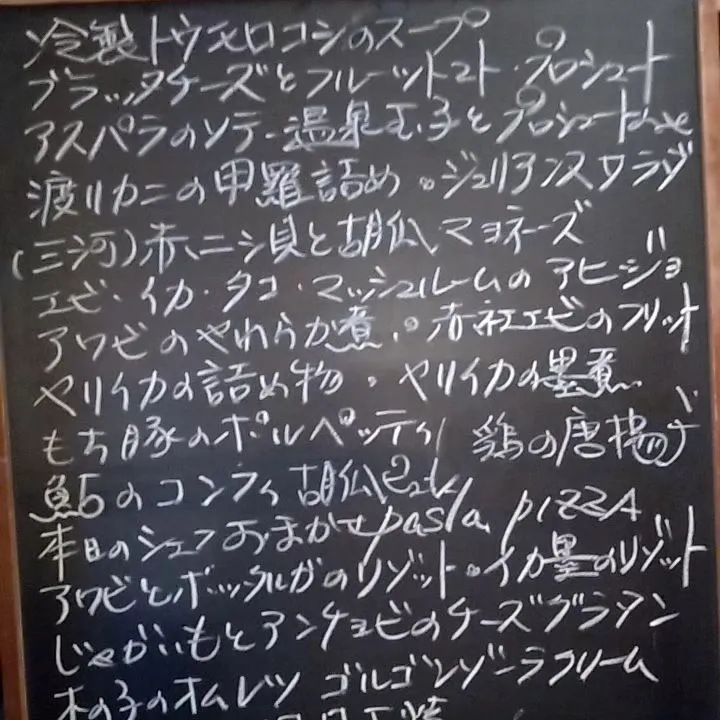 冷製トウモロコシのスープ
ブラッタチーズとフルーツトマト・プロシュート
アスパラのソテー温泉玉子とプロシュートのせ
渡リカニの甲羅詰め。ジュリアンヌサラダ
(三河)赤ニシ貝と胡瓜マヨネーズ
エビ・イカ・タコ・マッシュルームのアヒージョ
アワビのやわらか煮。赤紅エビのフリット
ヤリイカの詰め物。ヤリイカの墨煮
もち豚のポルペッティ 鶏の唐揚げ
のコンフィ胡瓜
本日のシェフおまかせpasta pizzA
アワビとのリゾット。イカ墨のリゾット
じゃがいもとアンチョビのチーズグラタン
木の子のオムレツ ゴルゴンゾーラクリーム